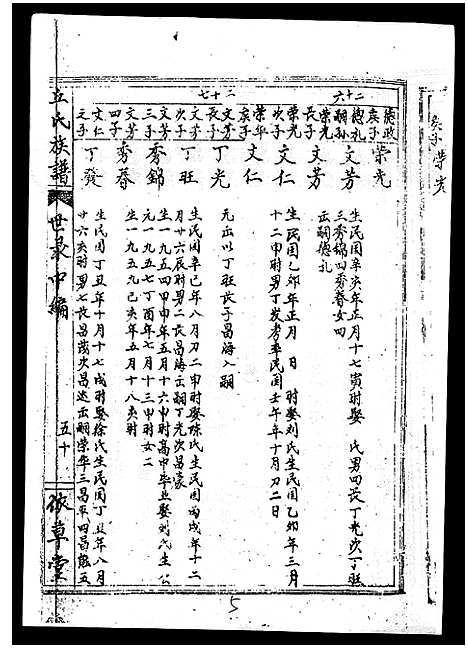 二十六
德政庶子 榮光
德礼嗣孙 榮光長子 文芳
生民国辛亥年正月十七寅时娶 氏男四長丁光次丁旺
三秀錦四秀春女四
出嗣德礼
榮光次子 文仁
生民国乙卯年正月 日 时娶刘氏生民国乙卯年三月
十二申时男丁发孝年民国壬午年十月刀二日
榮华庶子 文仁
二十七
文芳長子 丁光
元出以丁旺長子昌海入嗣
文芳次子 丁旺
生民国辛巳年八月刀二申时娶陈氏生民国丙戌年十二
月廿六辰时男二長昌海出嗣丁光次昌豪
文芳三子 秀錦
生一九五四甲申年五月十六申时高中毕业娶刘氏生公
元一九五七丁酉年七月十三申时女二
文芳四子 秀春
生一九五九己亥年五月十八亥时
文仁元子 丁發
生民国丁丑年十月十七戌时娶徐氏生民国丁丑年八月
廿六亥时男七長昌茂次昌达出嗣榮华三昌平四昌能五
丘氏族譜
世录中编
五十
敬草堂
5
庶子 榮光